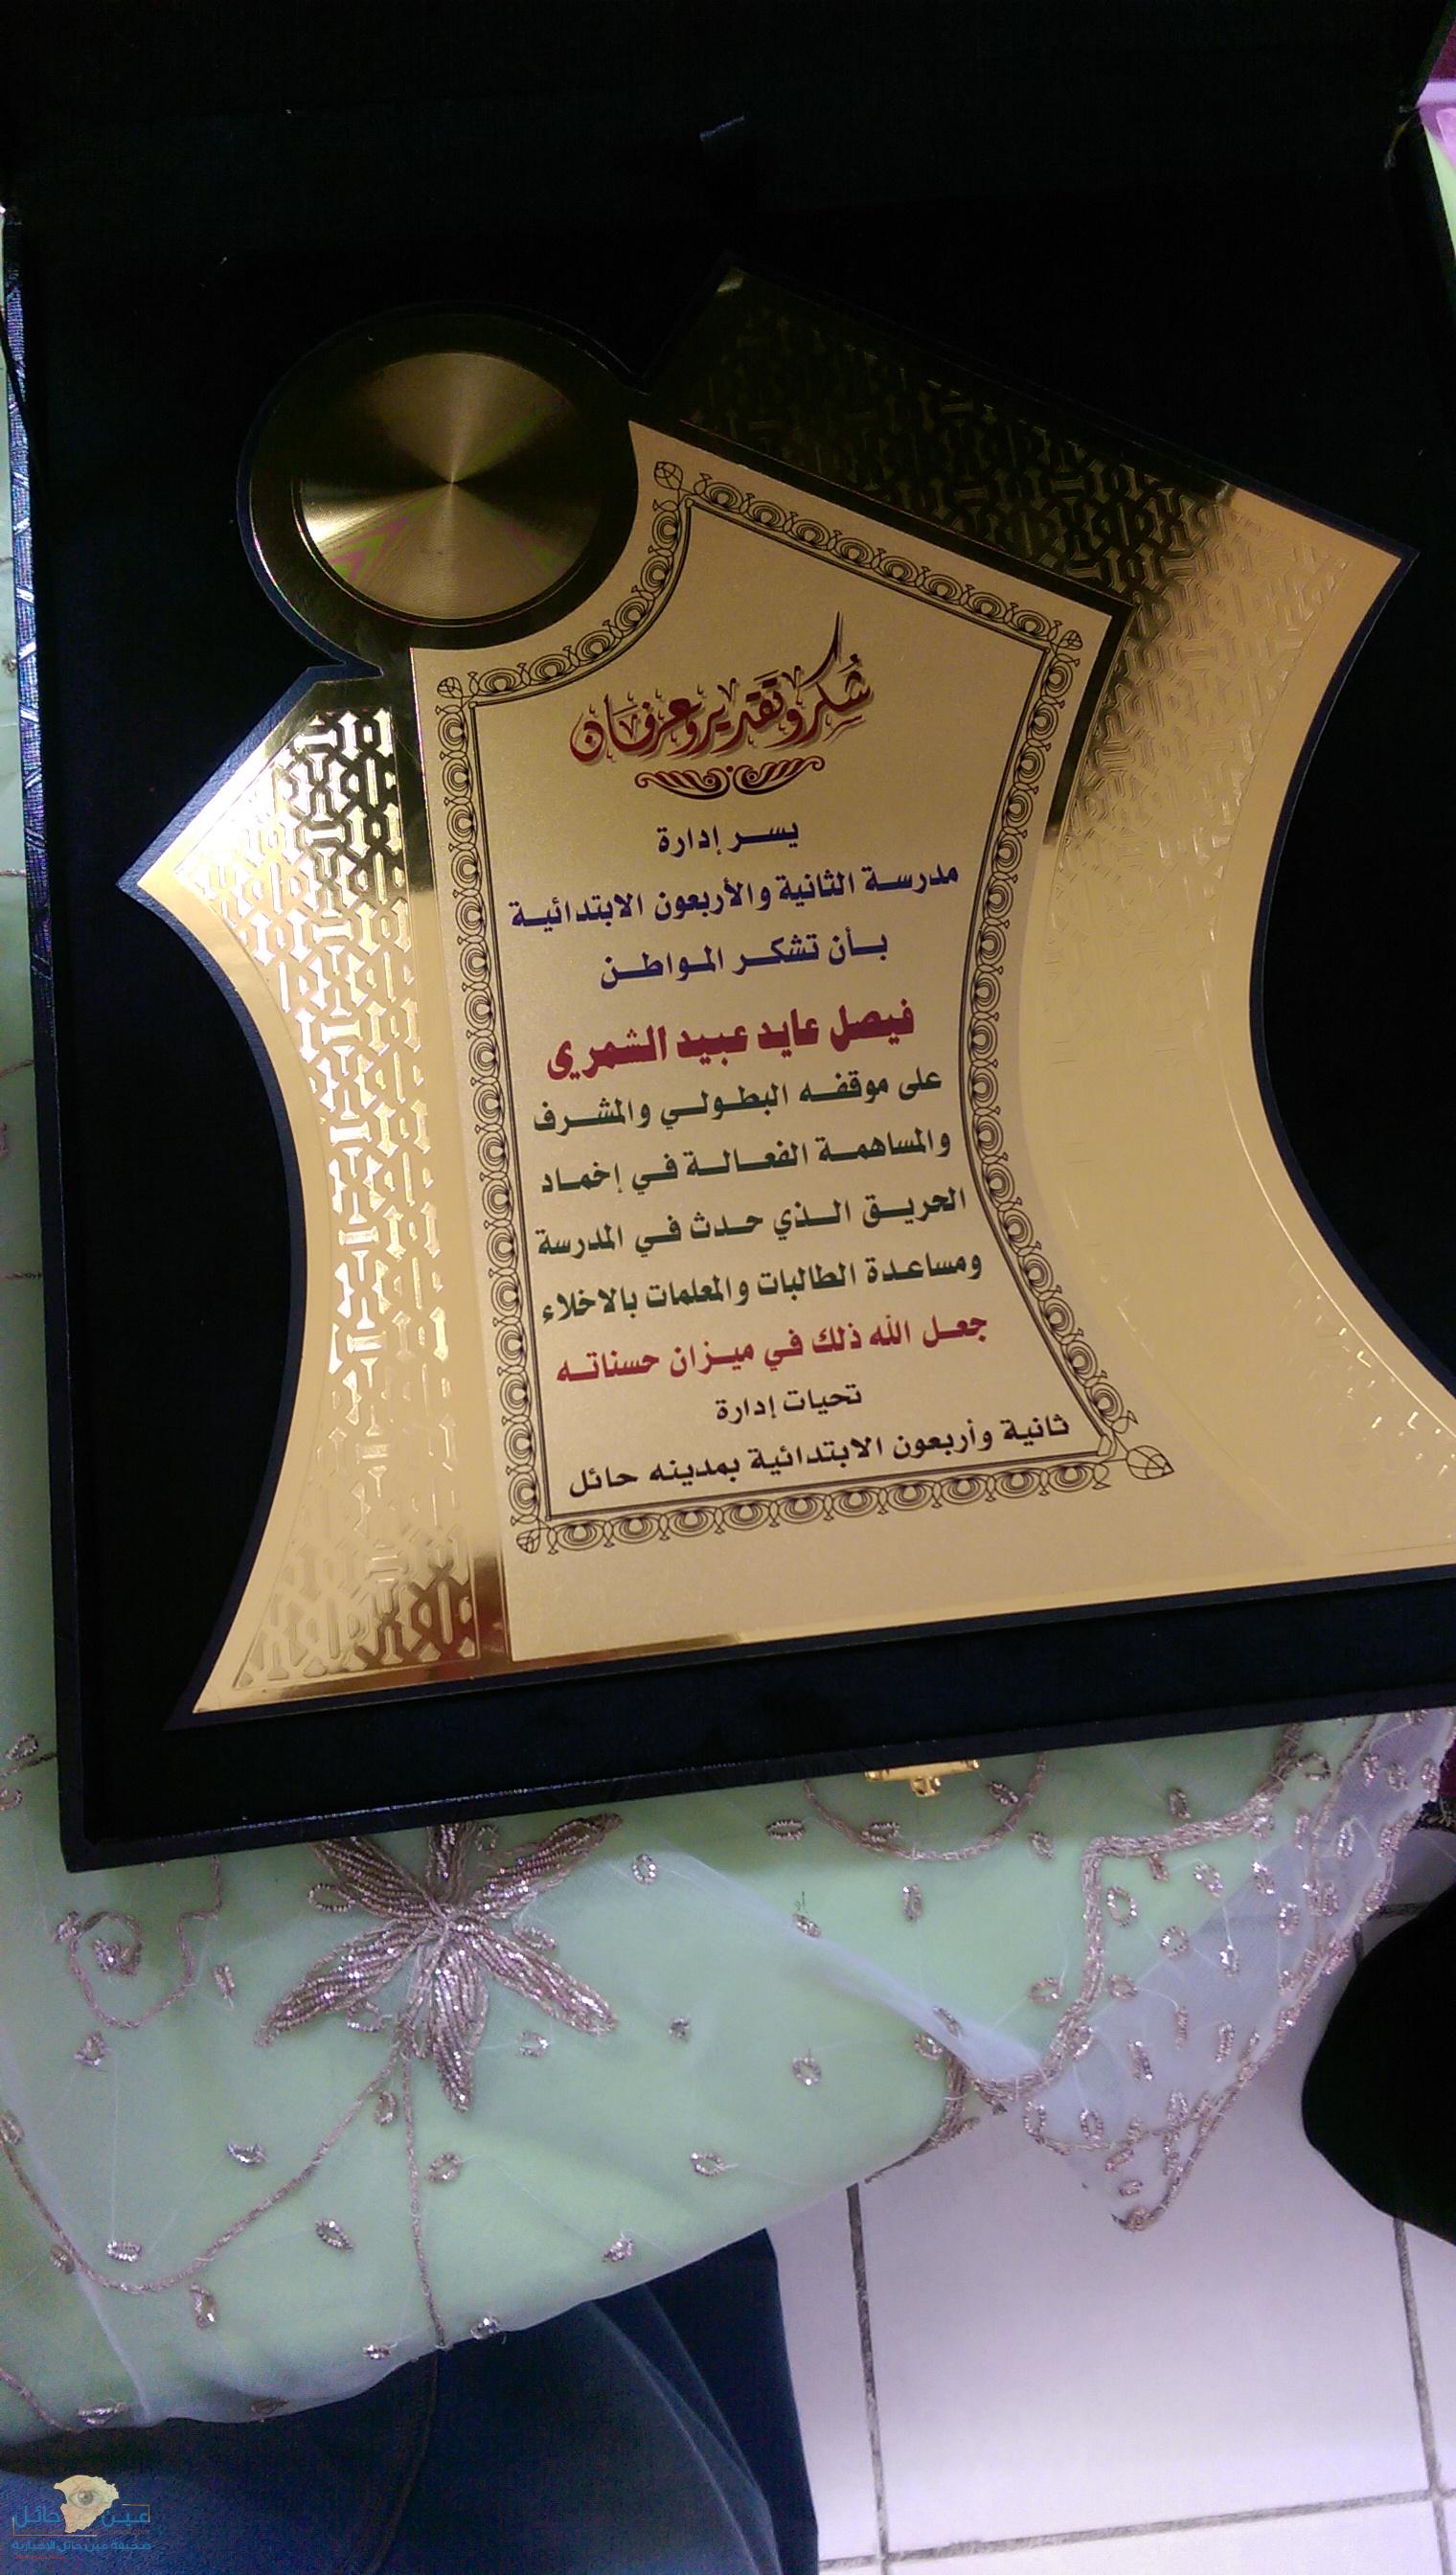 شُكر وتَقدير وعرفان
يسر إدارة
مدرسة الثانية والأربعون الابتدائية
بأن تشكر المواطن
فيصل عايد عبيد الشمري
على موقفه البطولي والمشرف
والمساهمة الفعالة في إخماد
الحريق الذي حدث في المدرسة
ومساعدة الطالبات والمعلمات بالاخلاء
جعل الله ذلك في ميزان حسناته
تحيات إدارة
ثانية وأربعون الابتدائية بمدينه حائل
عين حائل
صحيفة عين حائل الإخبارية